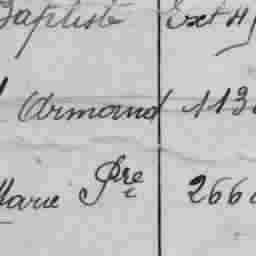 Baptiste Ext 4
Armand 113
Marie Pre 266